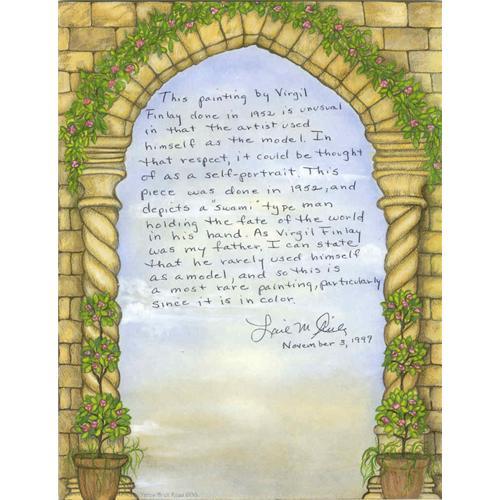 This painting by Virgil
Finlay done in 1952 is unusual
in that the artist used
himself as the model. In
that respect, it could be thought
of as a self-portrait. This
piece was done in 1952, and
depicts a "swami" type man
holding the fate of the world
in his hand. As Virgil Finlay
was my father, I can state
that he rarely used himself
as a model, and so this is
a most rare painting, particularly
since it is in color.
November 3, 1997